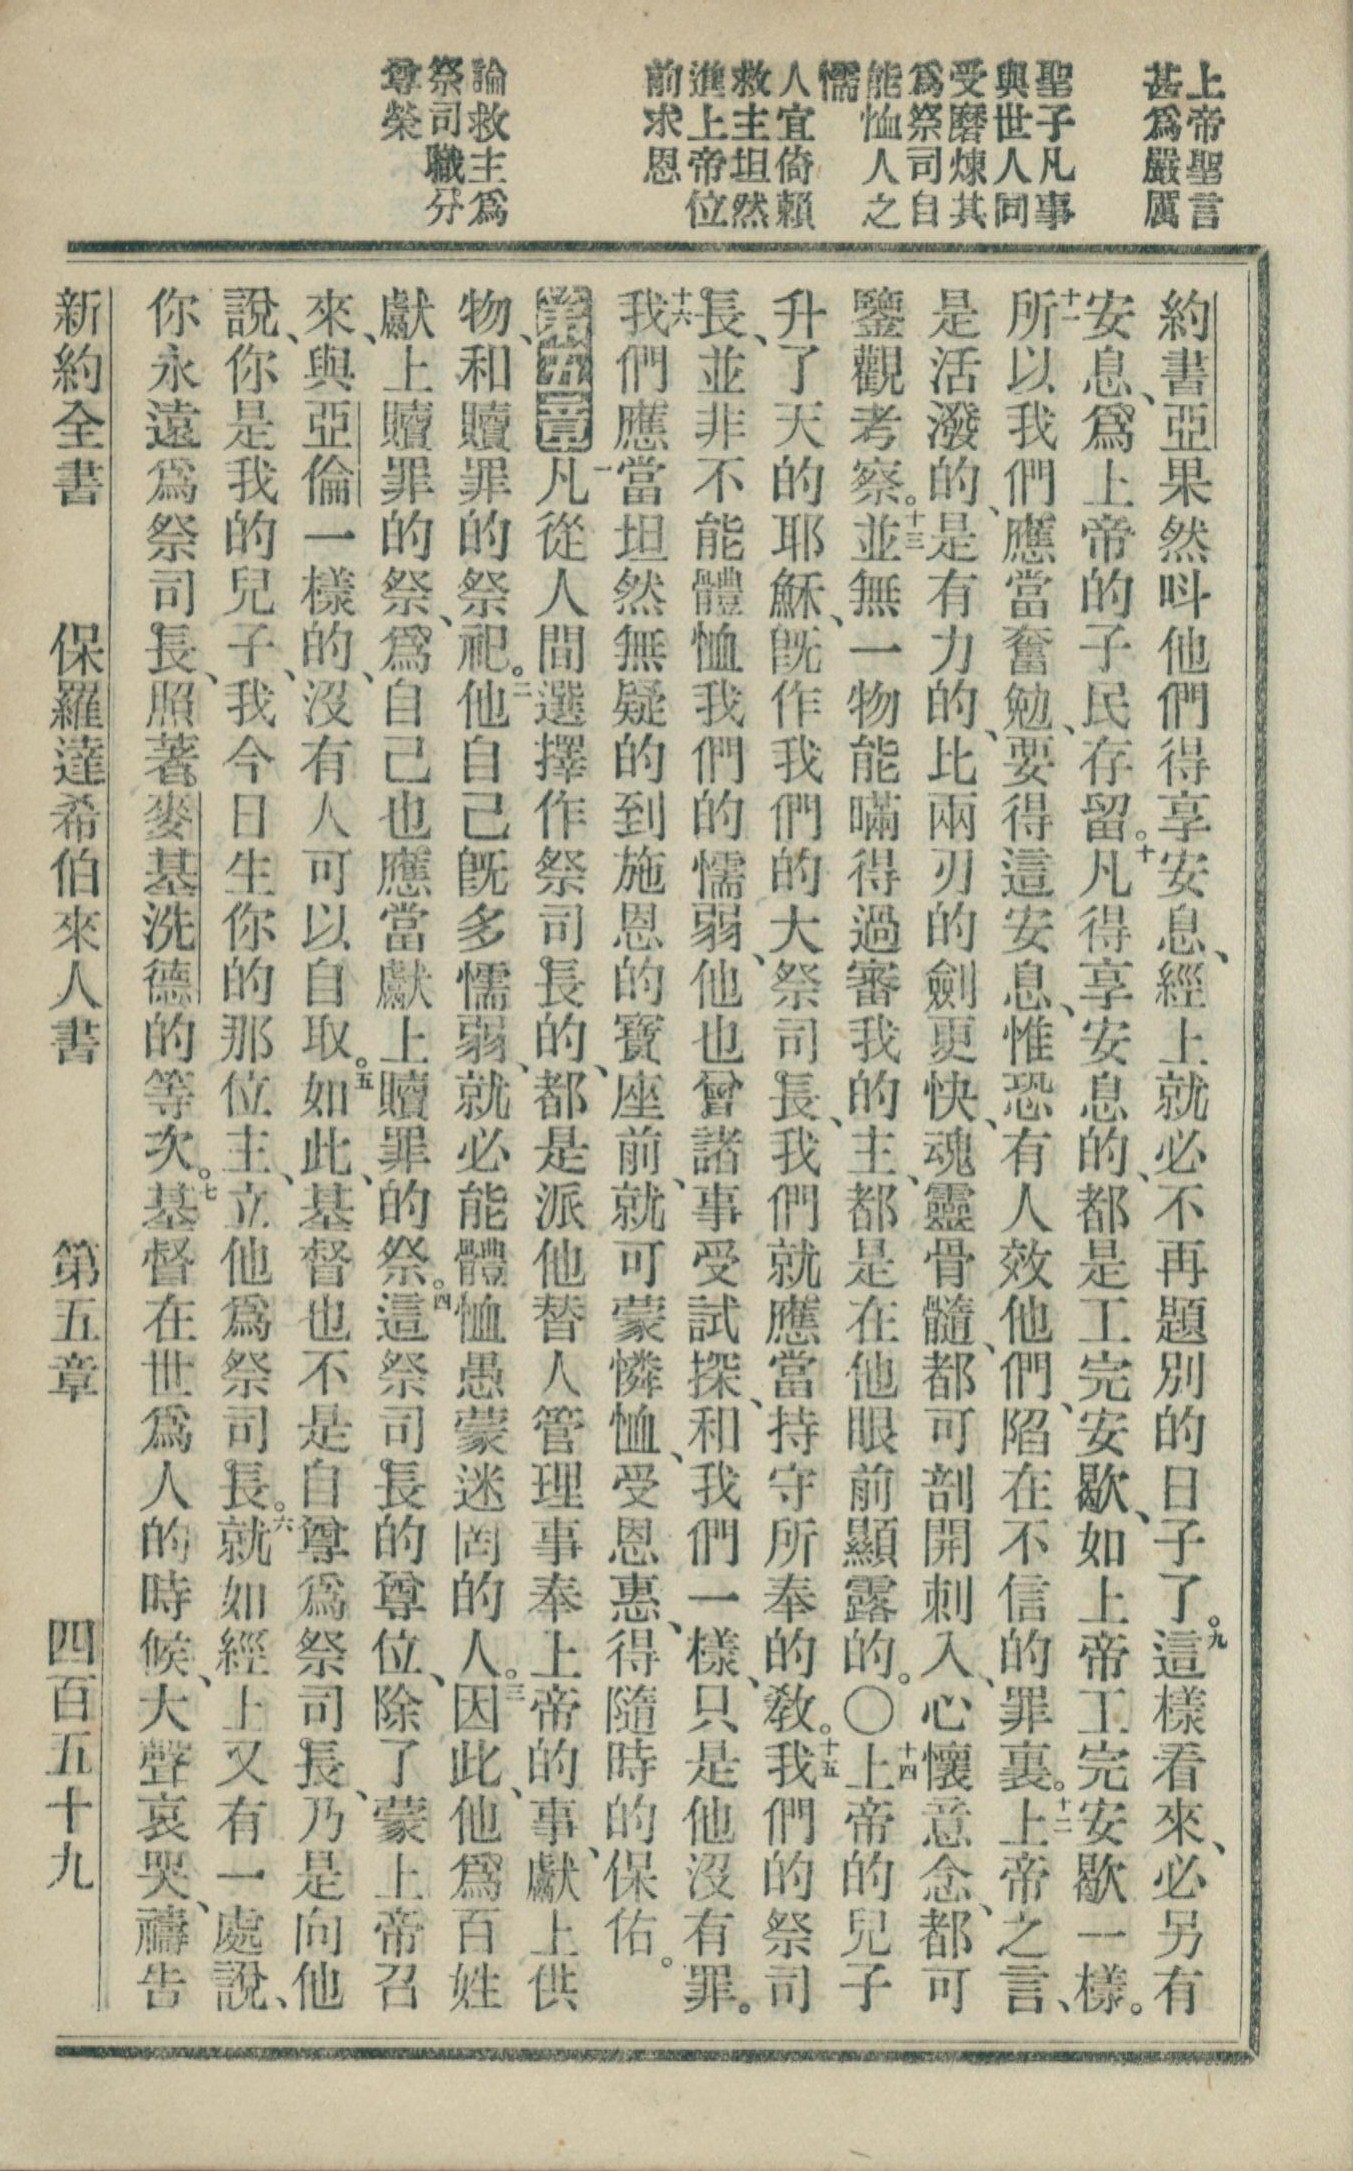 上帝聖言
甚爲嚴厲
聖子凡事
與世人同
受磨煉其
爲祭司自
能恤人之
懦
人宜倚賴
救主坦然
進上帝位
前求恩
論救主爲
祭司職分
尊榮
約書亞果然呌他們得享安息、經上就必不再題別的日子了。九這樣看來、必另有
安息、爲上帝的子民存留。十凡得享安息的、都是工完安歇、如上帝工完安歇一樣。
十一所以我們應當奮勉、要得這安息、惟恐有人效他們、陷在不信的罪裏。十二上帝之言、
是活潑的、是有力的、比兩刃的劍更快、魂靈骨髓、都可剖開刺入、心懷意念、都可
鑒觀考察。十三並無一物能瞞得過審我的主、都是在他眼前顯露的。〇十四上帝的兒子
升了天的耶穌、旣作我們的大祭司長、我們就應當持守所奉的敎。十五我們的祭司
長、並非不能體恤我們的懦弱、他也曾諸事受試探、和我們一樣、只是他沒有罪。
十六我們應當坦然無疑的到施恩的寶座前、就可蒙憐恤、受恩惠、得隨時的保佑。
第五章一凡從人間選擇作祭司長的、都是派他替人管理事奉上帝的事、獻上供
物、和贖罪的祭祀。二他自己旣多懦弱、就必能體恤愚蒙迷罔的人。三因此、他爲百姓
獻上贖罪的祭、爲自己也應當獻上贖罪的祭。四這祭司長的尊位、除了蒙上帝召
來、與亞倫一樣的、沒有人可以自取。五如此、基督也不是自尊爲祭司長、乃是向他
說、你是我的兒子、我今日生你的那位主、立他爲祭司長。六就如經上又有一處說、
你永遠爲祭司長、照著麥基洗德的等次。七基督在世爲人的時候、大聲哀哭、禱告
新約全書 保羅達希伯來人書 第五章 四百五十九